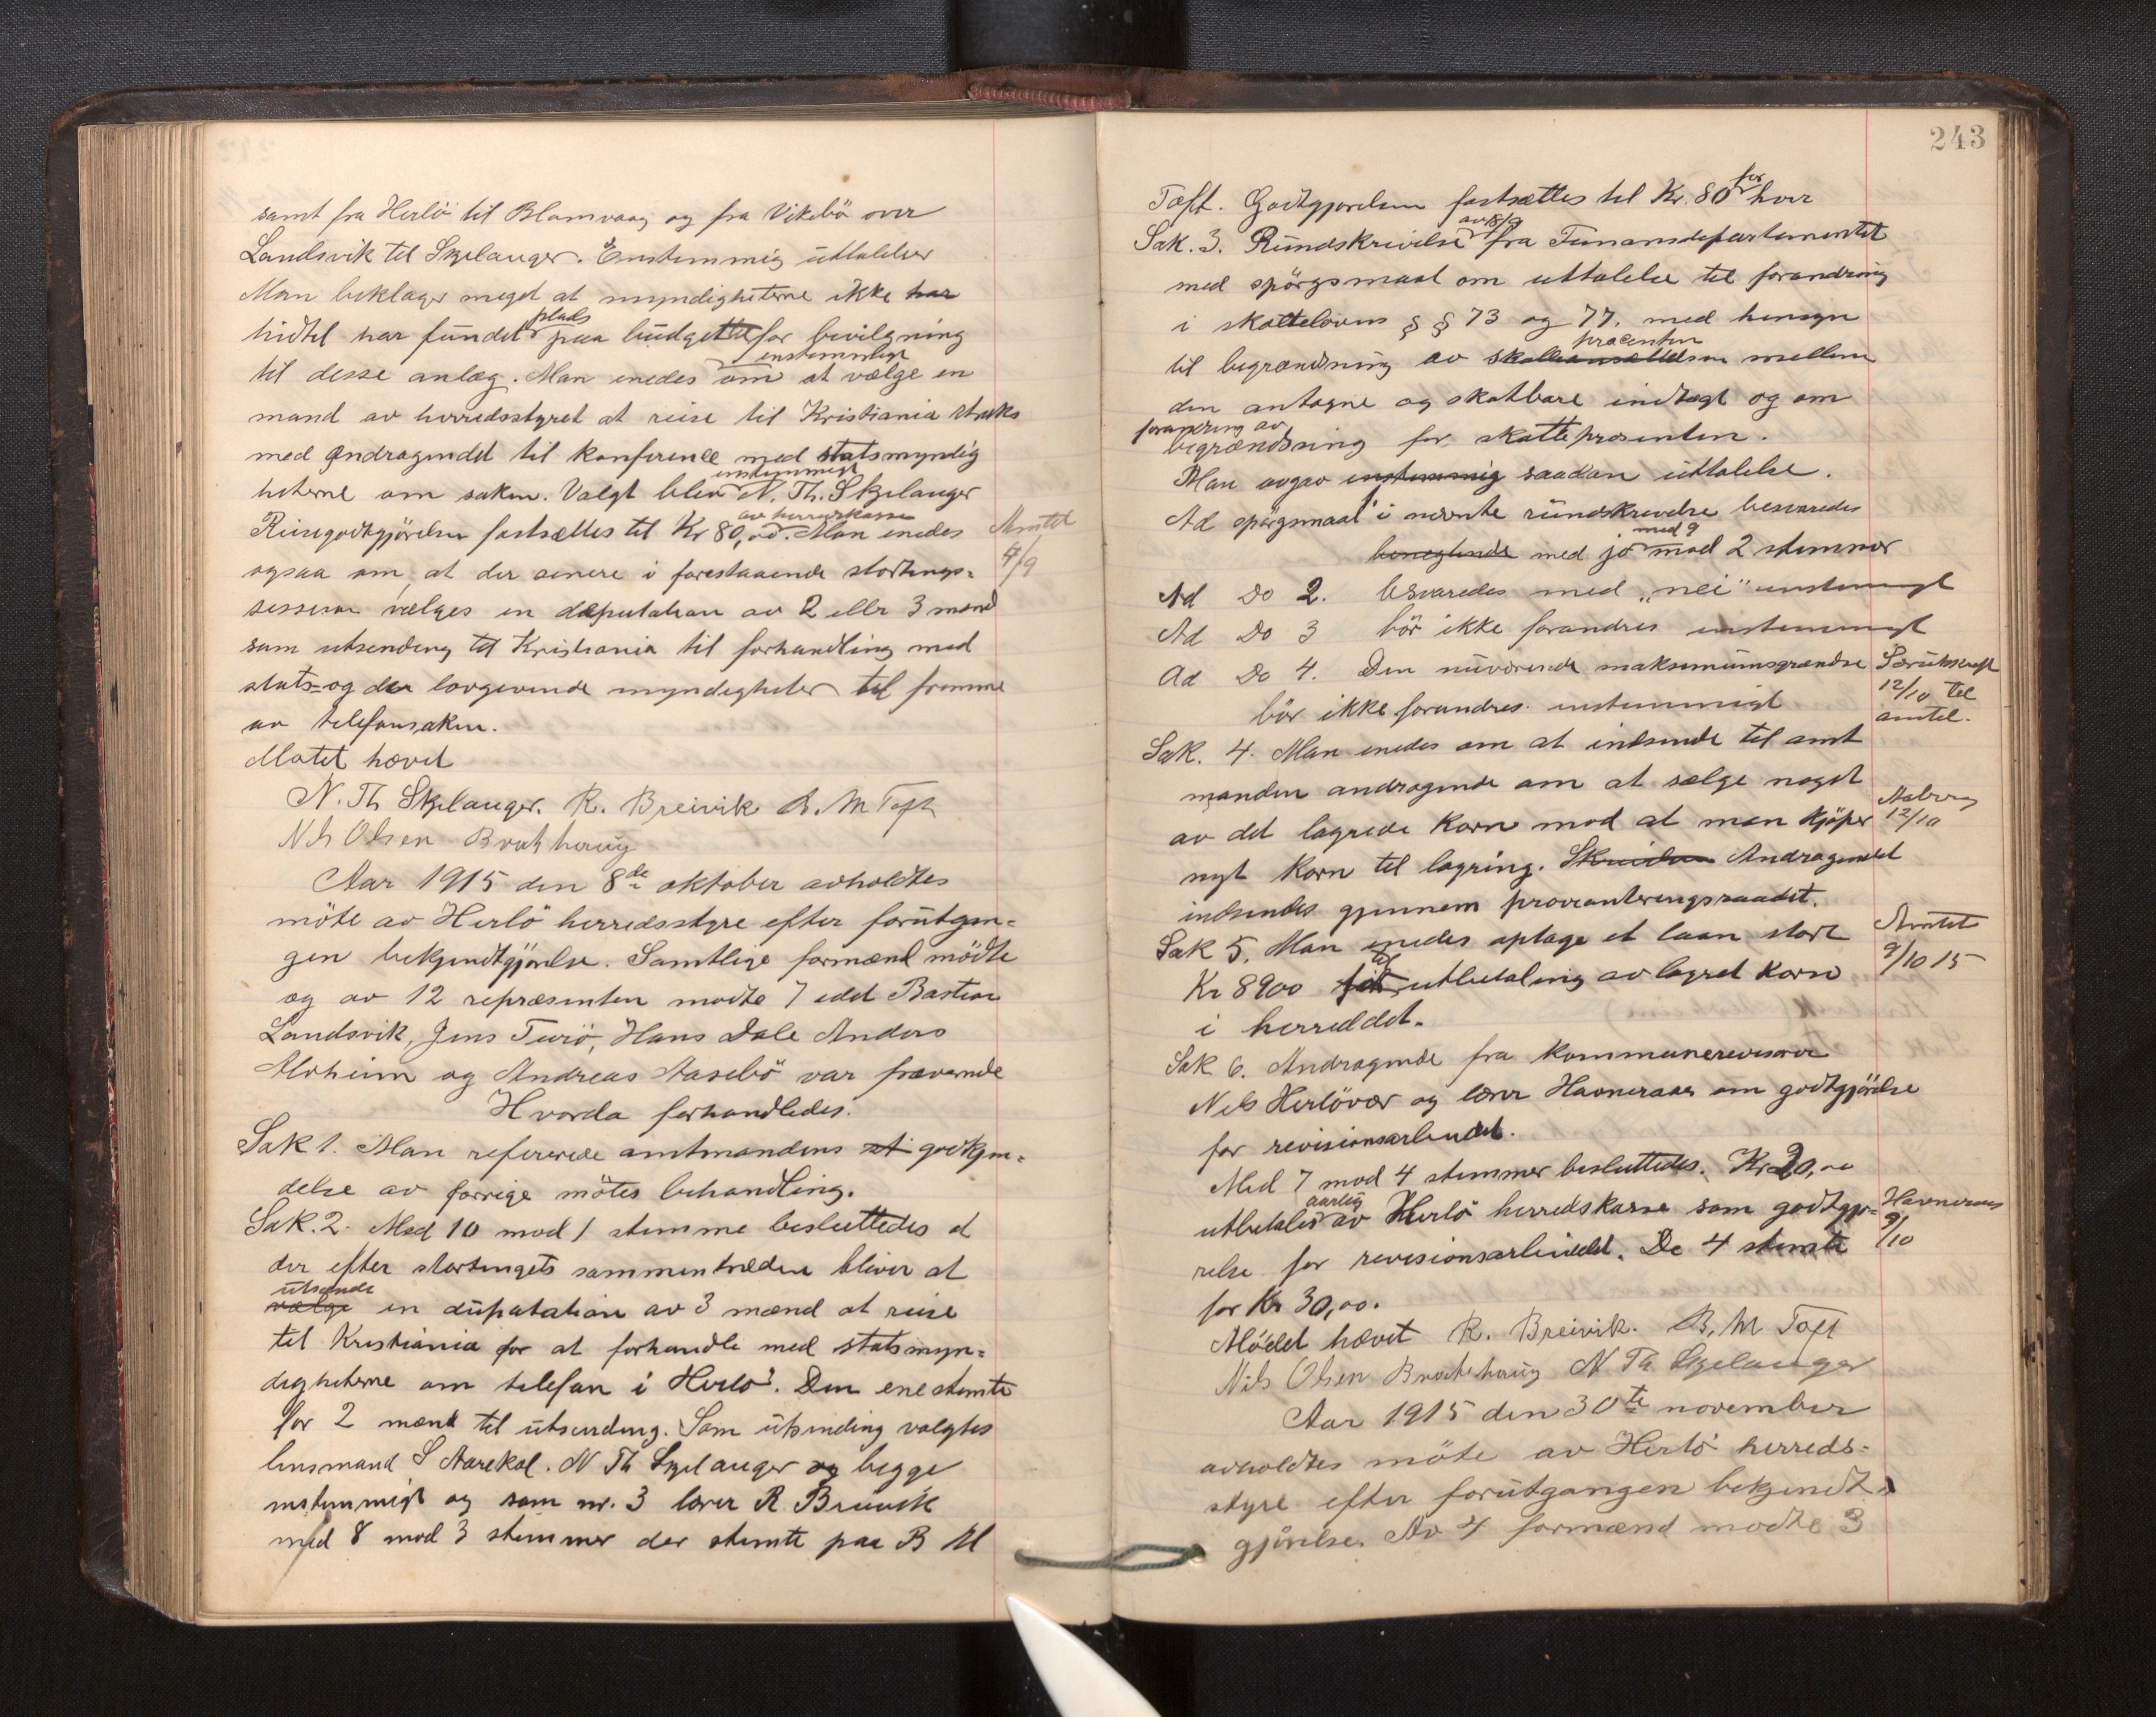 samt fra Herlö til Blomvaag og fra Vikebö over
Landsvik til Skjelanger. Enstemmig uttalelser
Man beklager meget at myndigheterne ikke har
hidtil har fundet plads paa budgettet for bevilgning
til desse anlæg. Man enedes enstemmigt om at vælge en
mand av herredsstyret at reise til Kristiania straks
med andragendet til konference med statsmyndig
heterne om saken. Valgt blev enstemmigt N. Th. Skjelanger
Reisegodtgjörelsen fastsættes til Kr 80,00. av herredskassen Man enedes
Amtet
4/9
ogsaa om, at der senere i forestaaende stortings-
sessjon vælges en deputation av 2 eller 3 mænd
som utsending til Kristiania til forhandling med
stats- og der lovgivende myndigheter til fremme
av telefonsaken.
Motet hævet
N. Th Skjelanger. R. Breivik B. M Toft
Nils Olsen Brathaug
Aar 1915 den 8de oktober avholdtes
möte av Herlö herredsstyre efter forutgan-
gen bekjendtgjörelse. Samtlige formænd mödte
og av 12 repræsenten modte 7 idet Bastian
Landsvik, Jens Turö, Hans Dale Anders
Alvheim og Andreas Aasebö var fraværende
Hvorda forhandledes.
Sak 1. Man refererede amtmandens godkjen-
delse av forrige mötes behandling.
Sak. 2. Med 10 mod 1 stemme besluttedes at
der efter stortingets sammentræden bliver at
vælge utsende en deputation av 3 mænd at reise
til Kristiania for at forhandle med statsmyn-
digheterne om telefon i Herlö. Den ene stemte
for 2 mænd til utsending. Som utsending valgtes
lensmand S Aarekol. N Th Skjelanger og begge
enstemmigt og som nr. 3 lærer R Breivik
med 8 mod 3 stemmer der stemte paa B M
243
Toft. Godtgjørelsen fastsættes til Kr. 80 for hver
Sak. 3. Rundskrivelse av 18/9 fra Finansdepartementet
med spörgsmaal om uttalelse til forandring
i skattelovens § § 73 og 77. med hensyn
til begrændsning av skatteansættelsen procenten mellem
den antagne og skatbare indtægt og om
forandring av begrændsning for skatteprosenten.
Man avgav enstemmig saadan uttalelse.
Ad spörgsmaal 1 i nævnte rundskrivelse besvaredes
benegtende med jo med 9 mod 2 stemmer
Ad Do 2. besvaredes med „nei" enstemmigt
Ad Do 3 bör ikke forandres enstemmigt
Ad Do 4. Den nuværende maksimumsgrændse
bör ikke forandres enstemmigt
Særutskrift
12/10 til
amtet.
Sak. 4. Man enedes om at indsende til amt
manden andragende om at sælge noget
av det lagrede korn mod at man kjöper
12/10
nyt korn til lagring. Andragendet
indsendes gjennem provianteringsraadet.
Sak 5. Man enedes optage et laan stort
Kr 8900 til utbetaling av lagret korn
i herreddet.
Amtet
9/10 15
Sak 6. Andragende fra kommunerevisorer
Nils Herlövær og lærer Havneraas om godtgjörelse
for revisionsarbeidet.
Med 7 mod 4 stemmer besluttedes. Kr 20,00
utbetales aarlig av Herlö herredskasse som godtgjø-
relse for revisionsarbeidet. De 4 stemte
for Kr 30,00.
Havneraas
9/10
Mödet hævet R. Breivik. B. M Toft
Nils Olsen Brathaug N Th Skjelanger
Aar 1915 den 30te november
avholdtes möte av Herlö herreds-
styre efter forutgangen bekjendt-
gjörelse. Av 4 formænd modte 3